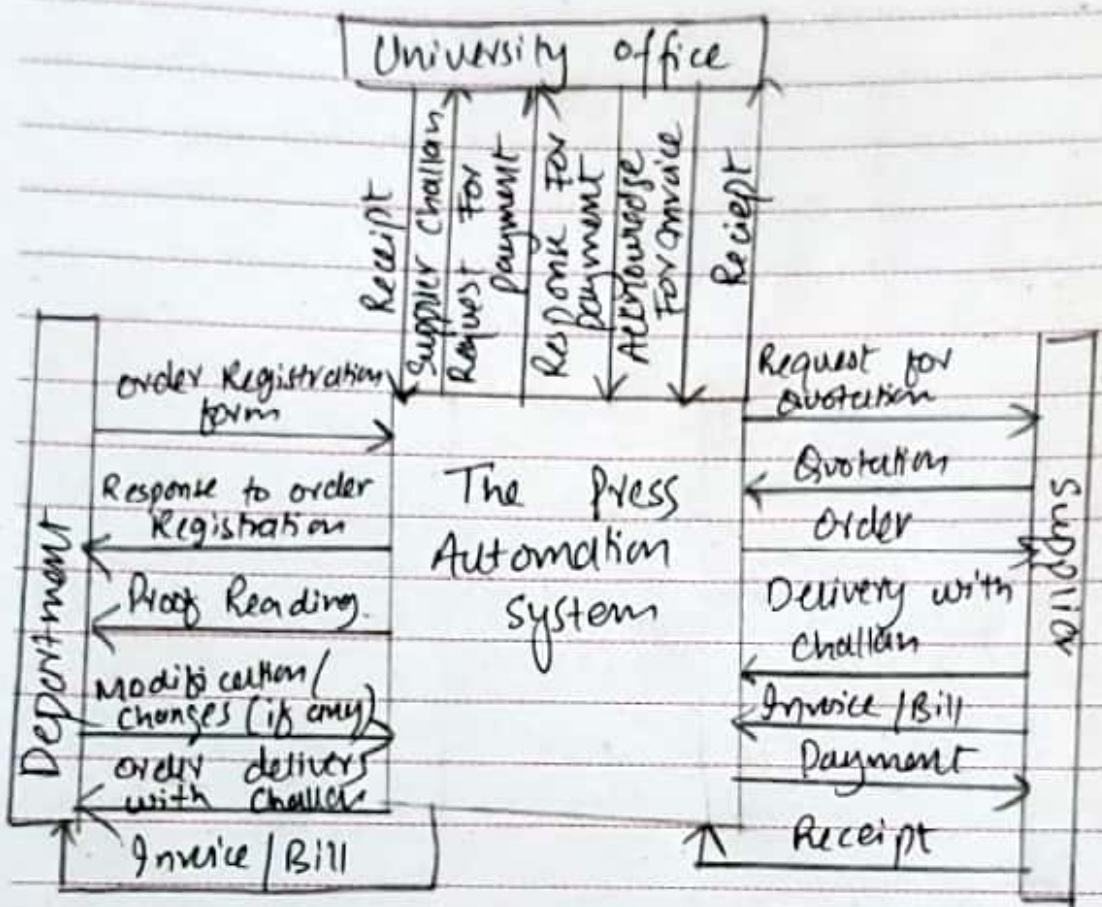 University office
Receipt
Supplier Challan
Request For
payment
Response For
payment
Acknowledge
For invoice
Reciept
order Registration
form
Response to order
Registration
Proof Reading.
Modification/
changes (if any)
order delivers
with Challan
Invoice / Bill
Department
The Press
Automation
system
Request for
Quotation
Quotation
order
Delivery with
challan
Invoice / Bill
Payment
Receipt
Supplier